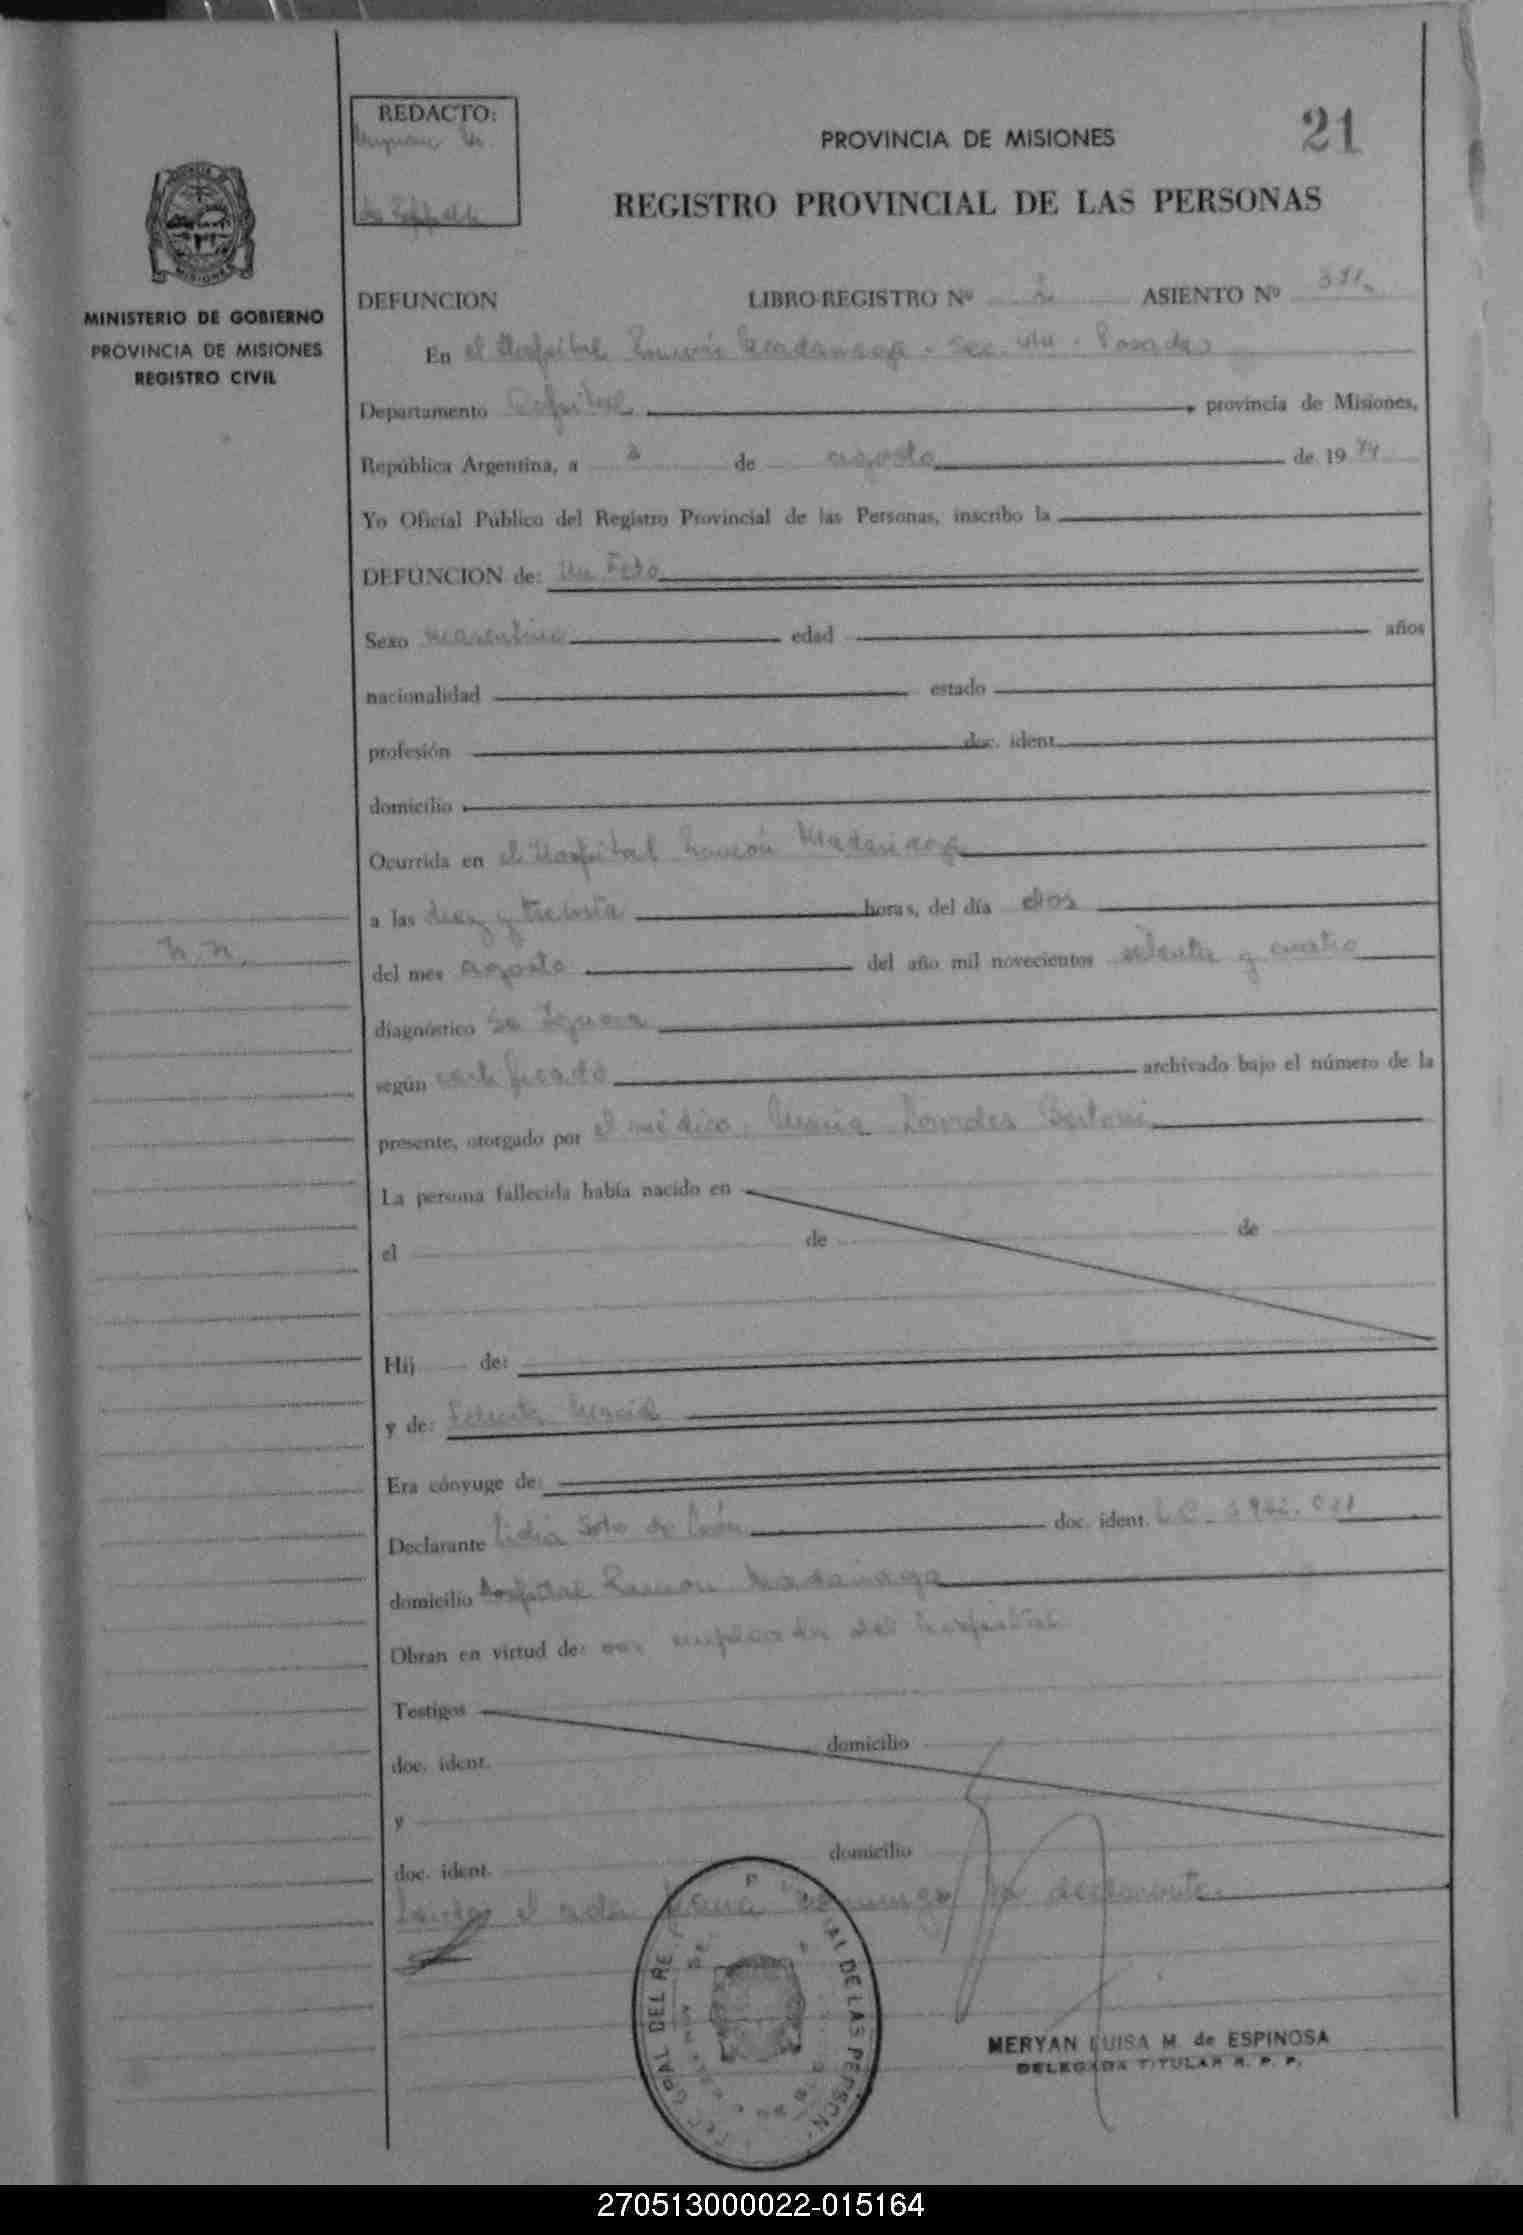 REDACTO:
PROVINCIA DE MISIONES
21
REGISTRO PROVINCIAL DE LAS PERSONAS
MINISTERIO DE GOBIERNO
PROVINCIA DE MISIONES
REGISTRO CIVIL
DEFUNCION LIBRO-REGISTRO Nº ASIENTO Nº
En el Hospital Ramón Madariaga - Sec. - Posadas
Departamento Capital provincia de Misiones,
República Argentina, a de agosto de 1974
Yo Oficial Público del Registro Provincial de las Personas, inscribo la
DEFUNCION de: Un Feto
Sexo masculino edad años
nacionalidad estado
profesión doc. ident.
domicilio
Ocurrida en el Hospital Ramón Madariaga
a las diez y treinta horas, del día dos
N.N.
del mes agosto del año mil novecientos setenta y cuatro
diagnóstico Se Ignora
según certificado archivado bajo el número de la
presente, otorgado por el médico, María Lourdes Bertoni
La persona fallecida había nacido en
el de de
Hij de:
y de: María
Era cónyuge de:
Declarante Lidia Soto de doc. ident. L.C.
domicilio Hospital Ramón Madariaga
Obran en virtud de: ser empleada del hospital
Testigos
doc. ident. domicilio
y
doc. ident. domicilio
el acta firma conmigo la declarante.
MERYAN LUISA M. de ESPINOSA
DELEGADA TITULAR R. P. P.
270513000022-015164